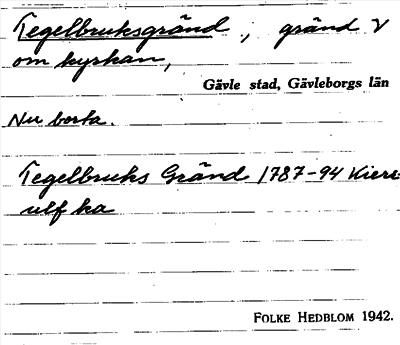 Tegelbruksgränd, gränd V
om kyrkan,
Gävle stad, Gävleborgs län
Nu borta.
Tegelbruks Gränd 1787-94 Kier
ulf ka
FOLKE HEDBLOM 1942.